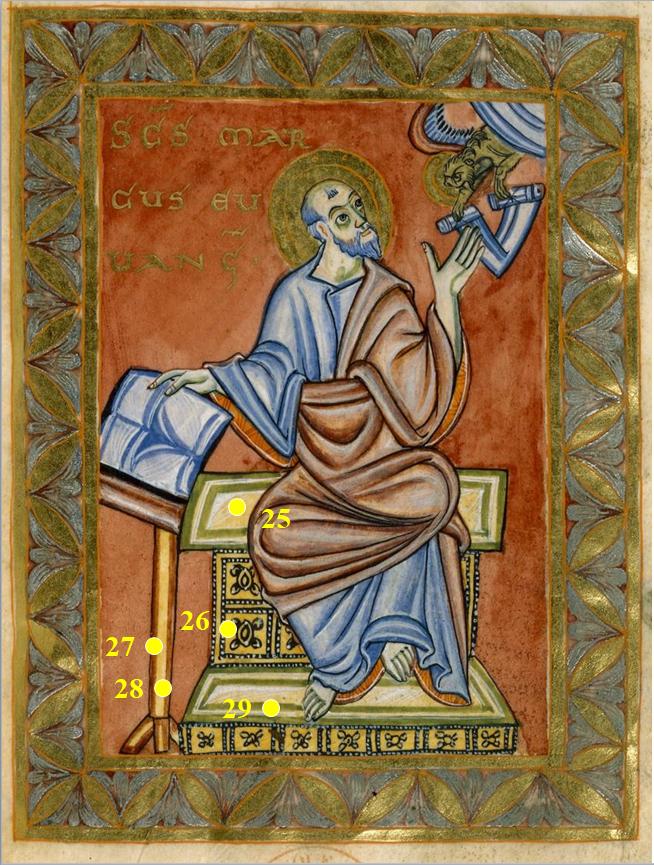 SCS MAR
CUS EU
UANG
25
26
27
28
29